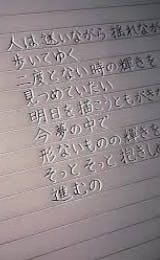 人は迷いながら 揺れなが
歩いてゆく
二度とない時の輝きを
見つめていたい
明日を描こうともがきな
今 夢の中で
形ないものの輝きを
そっとそっと抱きしめ
進むの